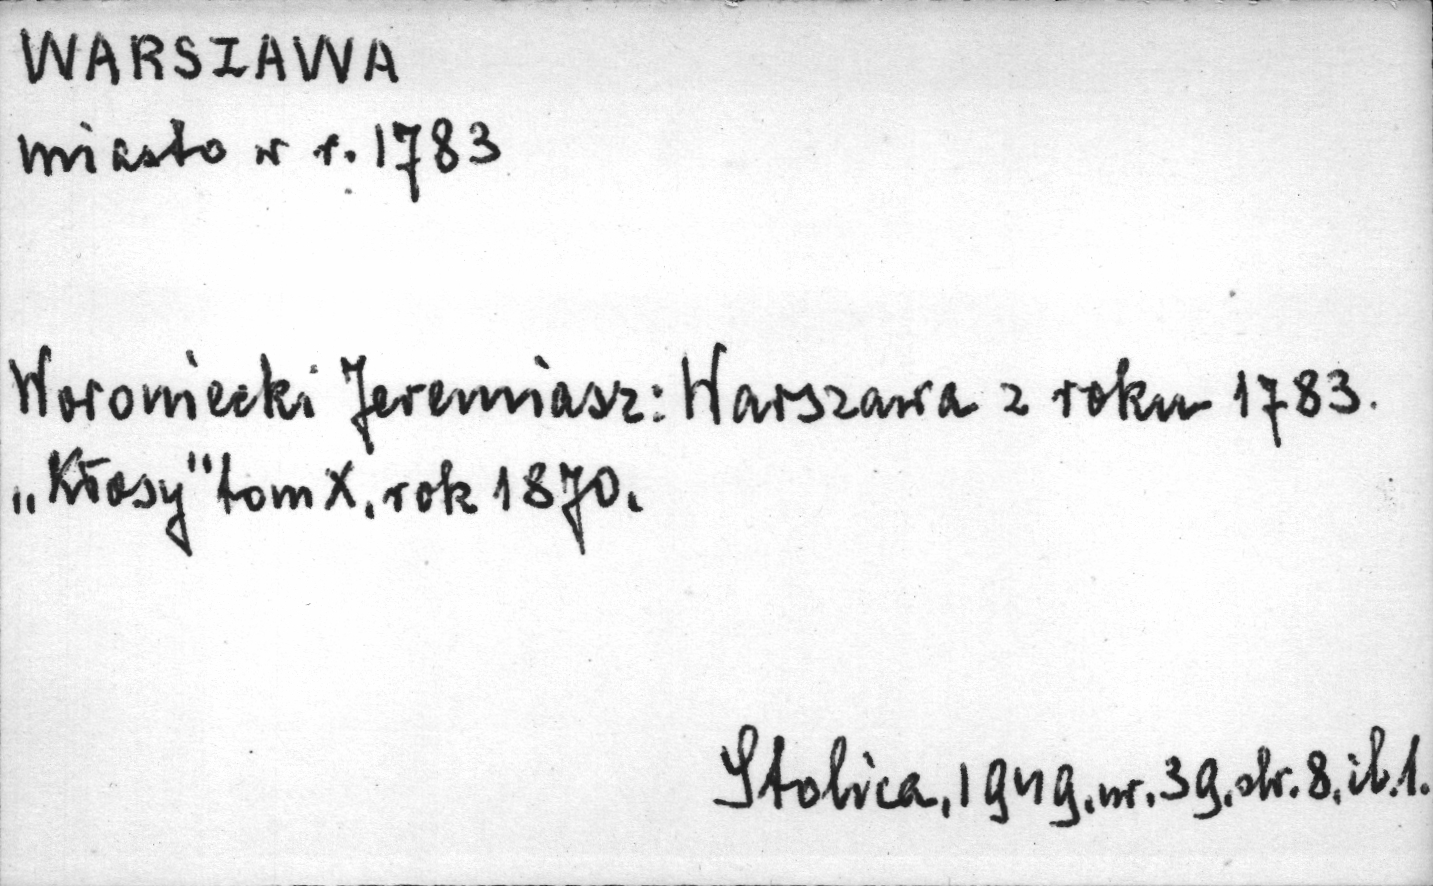 WARSZAWA
miasto w r. 1783
Woroniecki Jeremiasz: Warszawa z roku 1783.
„Kłosy" tom X, rok 1870.
Stolica, 1949, nr. 39, str. 8, il. 1.